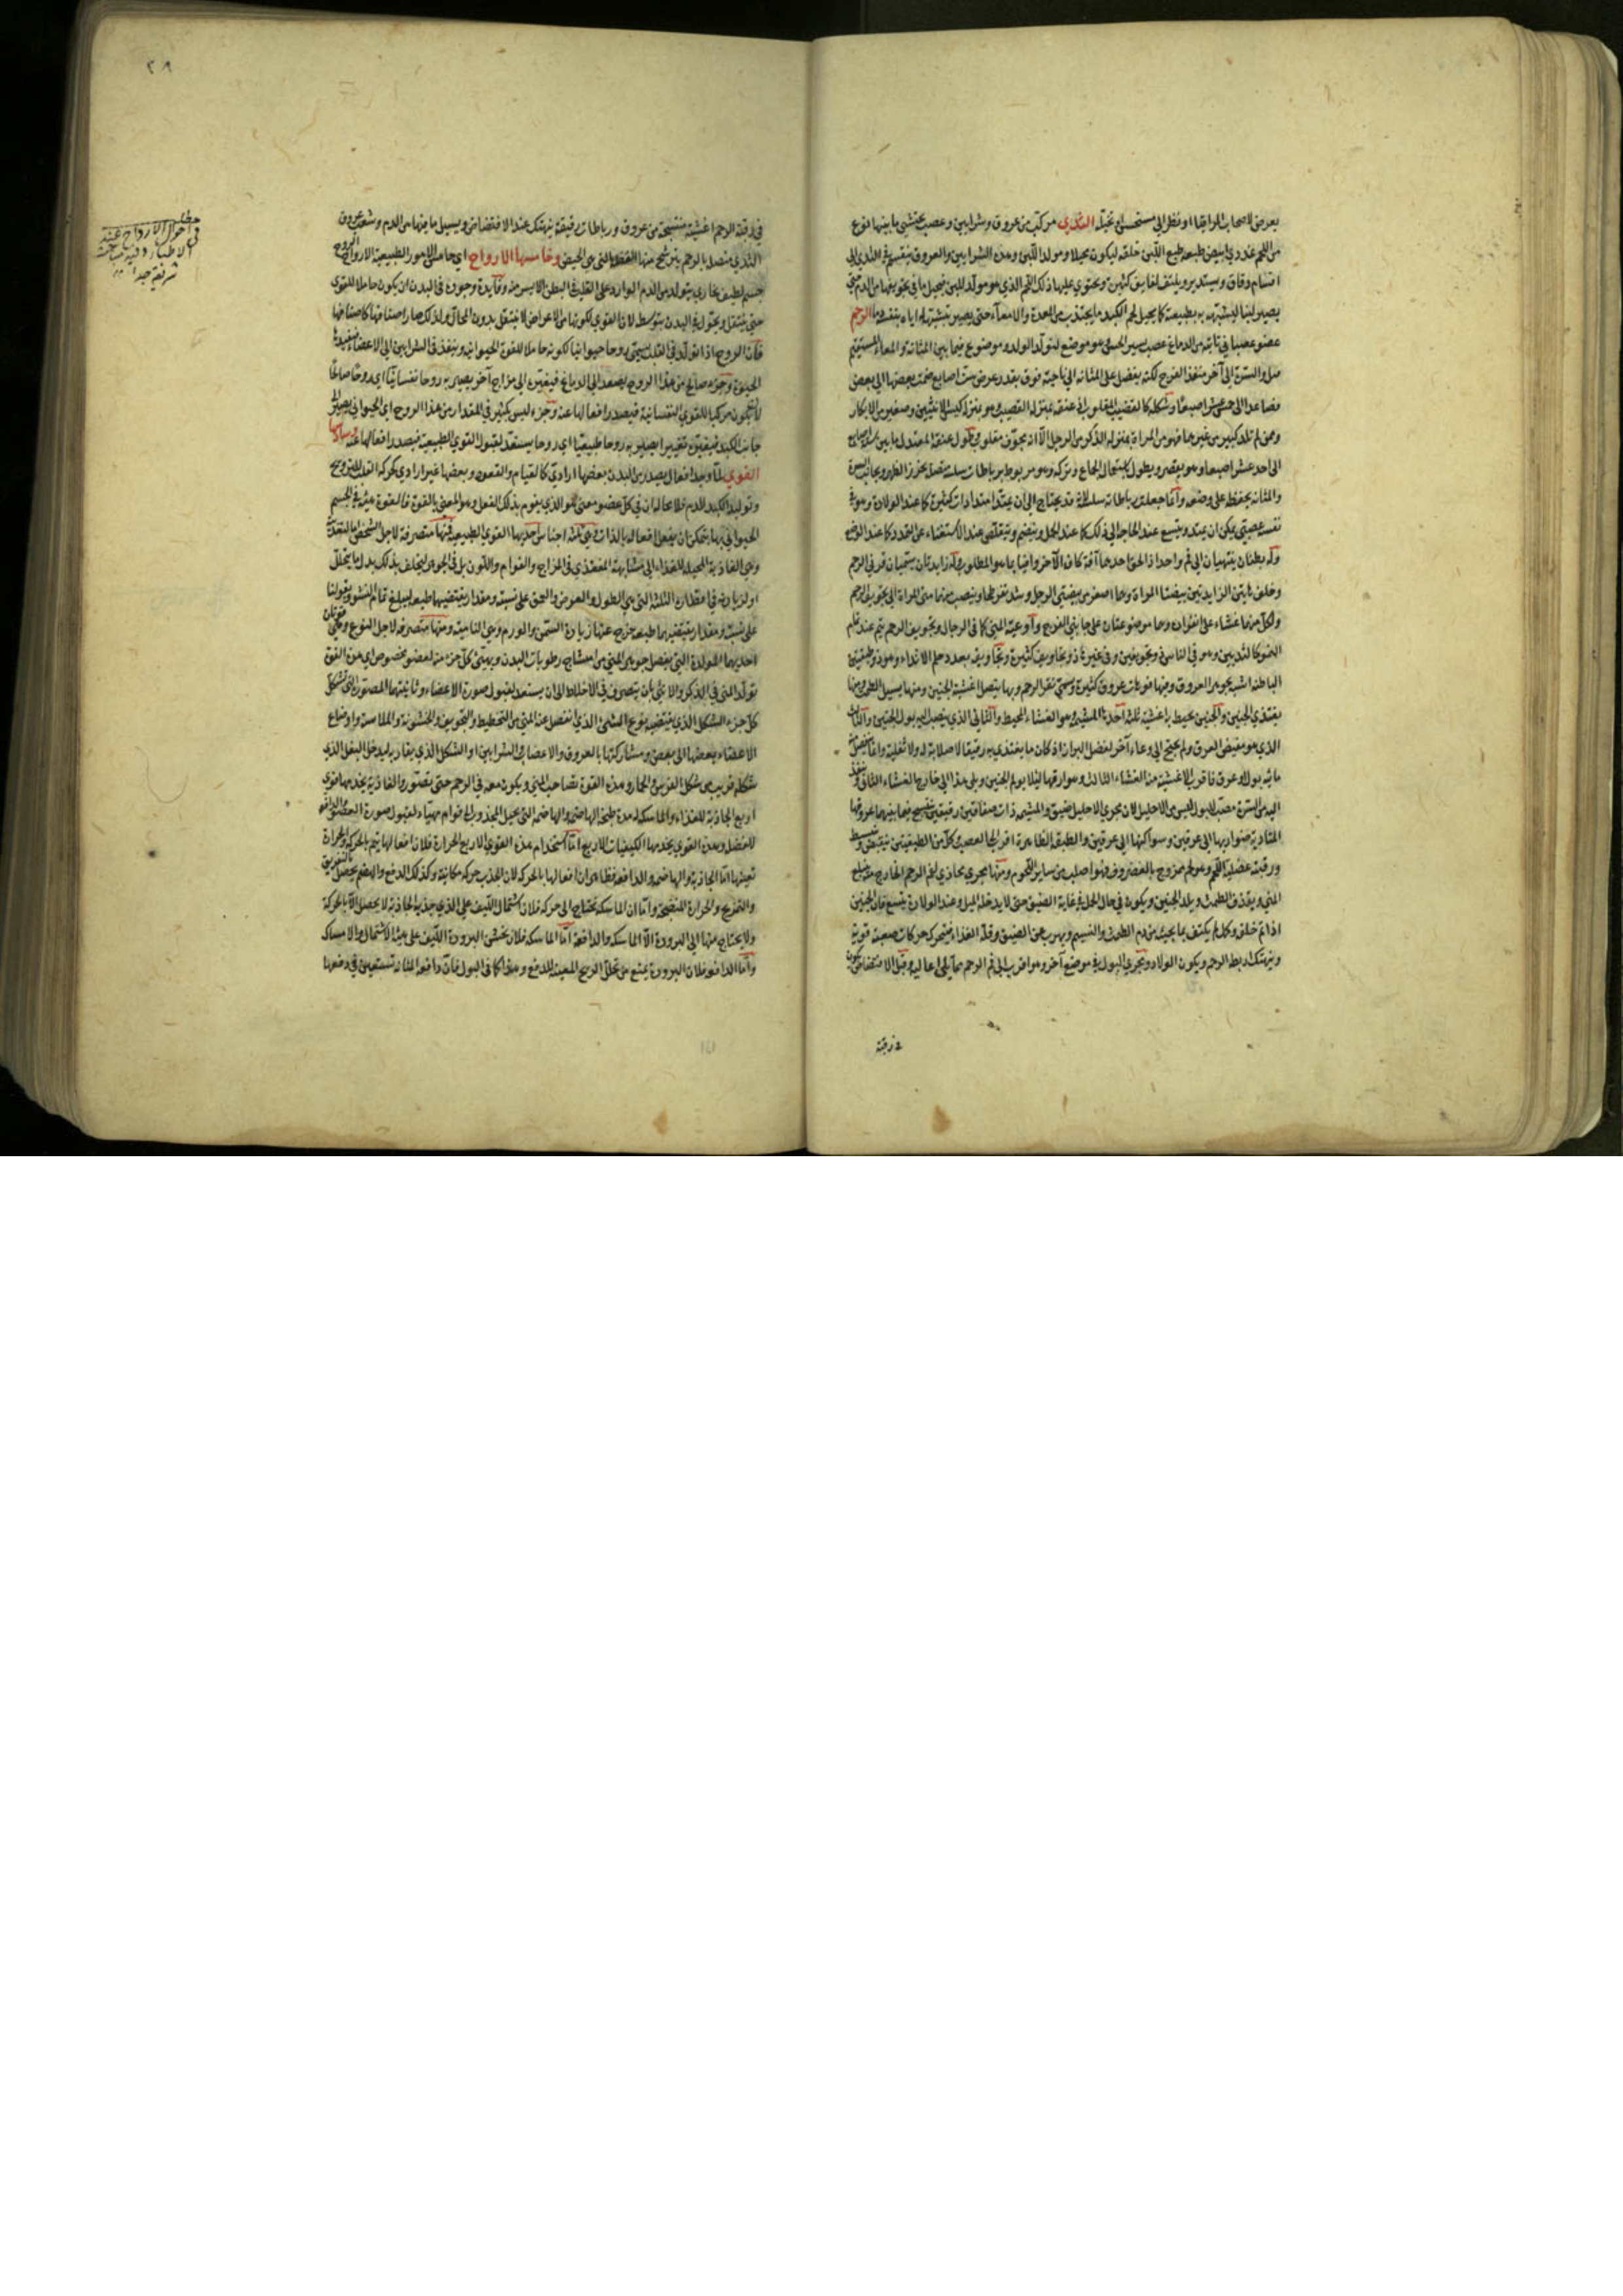 يعرض لاصحاب المراقبة او نظر الى مستحسن او تخيله الثدي مركب من عروق وشرايين وعصب يحتشي ما بينها نوع
من اللحم غددي ابيض طبيعته طبع اللبن خلقه ليكون محيلا ومولدا للبن وهذه الشرايين والعروق ينقسم في الثدي الى
اقسام دقاق ويستدير ويلتف لفايف كثيرة ويحتوي عليها ذلك اللحم الذي هو مولد للبن فيحيل ما في تجويفها من الدم حتى
يصير لبنا لتشبيهه به بطبيعته كما يحيل لحم الكبد ما يجتذب من المعدة والامعاء حتى يصير بتشبيهه اياه بنفسه دما الرحم
عضو عصباني نابته من الدماغ عصب يسير الحس هو موضع لتولد الولد وموضوع فيما بين المثانة والمعاء المستقيم
السرة الى آخر منفذ الفرج لكنه يفضل على المثانة الى ناحية فوق بقدر عرض ست اصابع ضمت بعضها الى بعض
فصاعدا الى خمس عشرة اصبعا وشكله كالقضيب المقلوب اذ عنقه بمنزلة القضيب هو بمنزلة كيس الانثيين وصغير من الابكار
وممن لم تلد كبير من غيرهما فهو من المراة بمنزلة الذكر من الرجل الا انه مجوف مقلوب طول عنقه المعتدل ما بين ست اصابع
الى احد عشر اصبعا وهو يقصر ويطول باستعمال الجماع وتركه وهو مربوط برباطات سلسة يتصل بخرز الظهر وبجانب السرة
والمثانة يحفظ على وضعه وانما جعلت رباطاته سلسلة قد يحتاج الى ان يمتد امتدادات كثيرة كما عند الولادة وهو في
نفسه عصبي يمكن ان يمتد ويتسع عند الحاجة الى ذلك كما عند الحمل وينضم ويتقلص عند الاستغناء عن التمدد كما عند الوضع
وله بطنان ينتهيان الى فم واحد اذ الحق احدهما آفة كان الآخر وافيا بما هو المطلوب وله زايدتان يسميان قرني الرحم
وخلف هاتين الزايدتين بيضتا المراة وهما اصغر من بيضتي الرجل واشد تفرطحا وينصب منهما مني المراة الى تجويف الرحم
ولكل منهما غشاء على انفراده وهما موضوعتان على جانبي الفرج واوعية المني كما في الرجال وتجويف الرحم يتم عند تمام
النمو كالثديين وهو في الناس ذو تجويفين وفي غيره ذو تجاويف كثيرة وتجاويفه بعدد حلم الاثداء وهو ذو طبقتين
الباطنة اشبه بجوهر العروق وفيها فوهات عروق كثيرة وسمي نقر الرحم وبها يتصل اغشية الجنين ومنها يسيل الطمث ومنها
يغتذي الجنين والجنين يحيط به اغشية ثلثة احدها المشيمة وهو الغشاء المحيط والثاني الذي ينصب اليه بول الجنين والثالث
الذي هو مفيض العرق ولم يحتج الى وعاء آخر لفضل البراز اذ كان ما يغتذي به رقيقا لا صلابة له ولا ثفلية وانما ينفصل منه
مائية بول او عرق فاقرب الاغشية منه الغشاء الثالث وهو ارقها لئلا يولم الجنين ويلي هذا الى خارج الغشاء الثاني وينفذ
اليه من السرة مصب للبول ليس من الاحليل لان مجري الاحليل ضيق والمشيمة ذات صفاقين رقيقين ينتسج فيما بينهما عروقها
المتادية ضواربها الى عرقين وسواكنها الى عرقين والطبقة الظاهرة اقرب الى العصب كل من الطبقتين ينقبض وينبسط
ورقبته عضلية اللحم وهو لحم ممزوج بالغضروف فهو اصلب من ساير اللحوم ومنها مجري محاذي لفم الرحم الخارج منه يبلع
المني ويقذف الطمث ويلد الجنين ويكون في حال الحمل في غاية الضيق حتى لا يدخله الميل وعند الولادة يتسع فان الجنين
اذا تم خلقه وكمل لم يكتف بما يجيئه من دم الطمث والنسيم ويهرب من الضيق وقلة الغذاء فيتحرك حركات صعبة قوية
وينهتك اربطة الرحم ويكون الولاد ومجري البول في موضع آخر وهو اقرب الى فم الرحم مما يلي اعاليه وقبل الافتضاض يكون
في رقبة
٣٩
في رقبة الرحم اغشية منتسجة من عروق ورباطات رقيقة ينهتك عند الافتضاض ويسيل ما فيها من الدم وشعب عروق
الثدي متصل بالرحم يترشح منها الفضلة التي هي الحيض وخامسها الارواح اي خامس الامور الطبيعية الارواح الروح
جسم لطيف بخاري يتولد من الدم الوارد على القلب في البطن الايسر منه وفايدة وجوده في البدن ان يكون حاملا للقوى
حتى ينتقل ويجول في البدن بتوسطه لان القوى لكونها من الاعراض لا ينتقل بدون المحال ولذلك صار اصنافها كاصنافها
فان الروح اذا تولد في القلب يسمى روحا حيوانيا لكونه حاملا للقوة الحيوانية وينفذ في الشرايين الى الاعضاء فيفيدها
الحيوة وجزء صالح من هذا الروح يصعد الى الدماغ فيتغير الى مزاج آخر يصير به روحا نفسانيا اي روحا صالحا
لان يكون مركبا للقوى النفسانية فيصدر افعالها عنه وجزء ليس بكثير في المقدار من هذا الروح اي الحيواني يصير الى
جانب الكبد فيتغير تغييرا يصير به روحا طبيعيا اي روحا يستعد لقبول القوى الطبيعية فيصدر افعالها عنه وسادسها
القوى لما وجد افعال يصدر من البدن بعضها ارادي كالقيام والقعود وبعضها غير ارادي كحركة القلب للترويح
وتوليد الكبد للدم فلا محالة ان في كل عضو معنى هو الذي يقوم بذلك الفعل وهو المعني بالقوة فالقوة هيئة في الجسم
الحيواني بها يتمكن ان يفعل افعاله بالذات وهي ثلثة اجناس احديها القوى الطبيعية فمنها متصرفة لاجل الشخص اما للتغذية
وهي الغاذية المحيلة للغذاء الى مشابهة المغتذي في المزاج والقوام واللون بل في الجوهر ليخلف بذلك بدل ما يتحلل
او لزيادة في اقطاره الثلثة التي هي الطول والعرض والعمق على نسبة ومقدار يقتضيها طبعه ليبلغ تمام النشو وبقولنا
على نسبة ومقدار يقتضيهما طبعه خرج عنها زيادة السمن والورم وهي النامية ومنها متصرفة لاجل النوع وهي قوتان
احديهما المولدة التي يفصل جوهر المني من امشاج رطوبات البدن ويهيئ كل جزء منه لعضو مخصوص اي هذه القوة
تولد المني في الذكر والانثى بان يتصرف في الاخلاط الى ان يستعد لقبول صورة الاعضاء وثانيتهما المصورة التي تشكل
كل جزء الشكل الذي يقتضيه نوع الشيء الذي انفصل عنه المني من التخطيط والتجويف والخشونة والملاسة واوضاع
الاعضاء بعضها الى بعض ومشاركتها بالعروق والاعصاب والشرايين او الشكل الذي يقاربه ليدخل البغل الذي
شكله قريب من شكل الفرس والحمار وهذه القوة تصاحب المني ويكون معه في الرحم حتى يتصور والغاذية يخدمها قوى
اربع الجاذبة للغذاء والماسكة له مدة طبخ الهاضمة والهاضمة التي يحيل المجذوب الى قوام مهيأ لقبول صورة العضو والدافعة
للفضل وهذه القوى يخدمها الكيفيات الاربع اما استخدام هذه القوى الاربع الحرارة فلان افعالها يتم بالحركة والحرارة
تعينها اما الجاذبة والهاضمة والدافعة فظاهر ان افعالها بالحركة لان الجذب حركة مكانية وكذلك الدفع والهضم يحصل بالتفريق
والتمزيج والحرارة للنضجة واما ان الماسكة تحتاج الى حركة فلان اشتمال الليف على الذي جذبه الجاذبة لا يحصل الا بالحركة
ولا يحتاج منها الى البرودة الا الماسكة والدافعة اما الماسكة فلان يحبس البرودة الليف على هيئة الاشتمال والامساك
واما الدافعة فلان البرودة يمنع من تحلل الريح المعينة للدفع وهذا كما في البول فان دافعة المثانة تستعين في دفعها
مطلب
في احوال الارواح عند
الاطباء وفيه مباحث
شريفة جدا